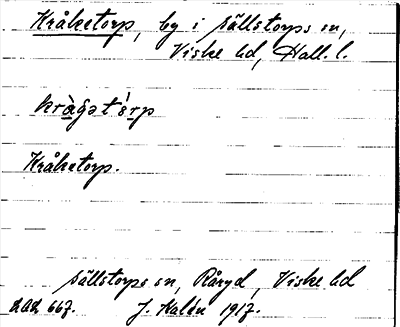 Kråketorp, by i Sällstorps sn,
Viske hd, Hall. l.
kràgət'órp
Kråketorp.
Sällstorps sn, Råryd, Viske hd
667. J. Kalén 1917.